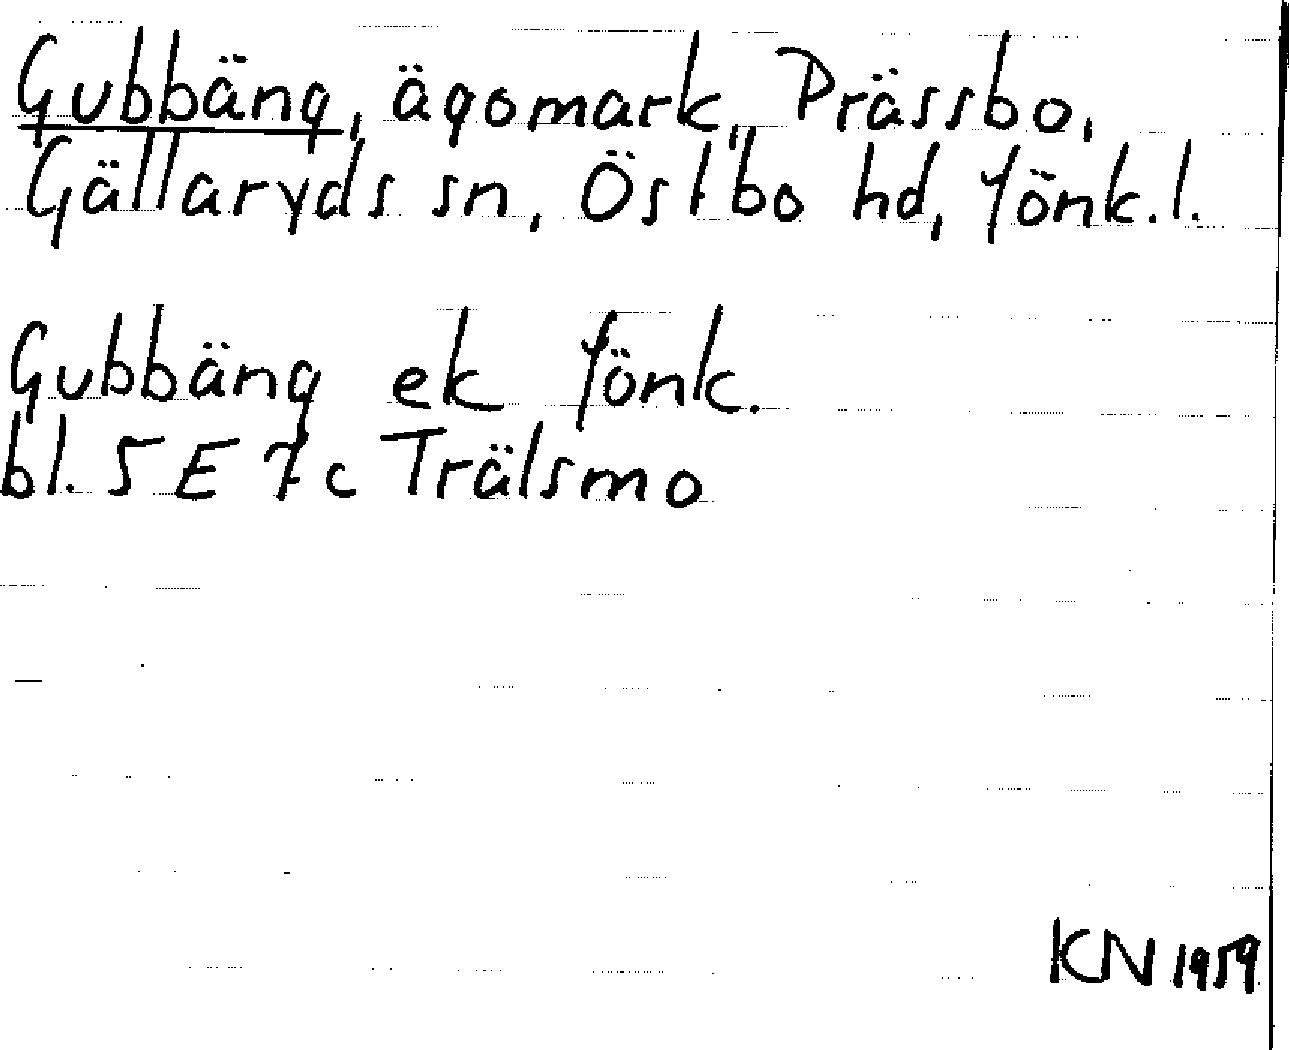 Gubbäng, ägomark, Prässbo,
Gällaryds sn, Östbo hd, Jönk. l.
Gubbäng ek Jönk.
bl. 5 E 7 c Trälsmo
KN 1959